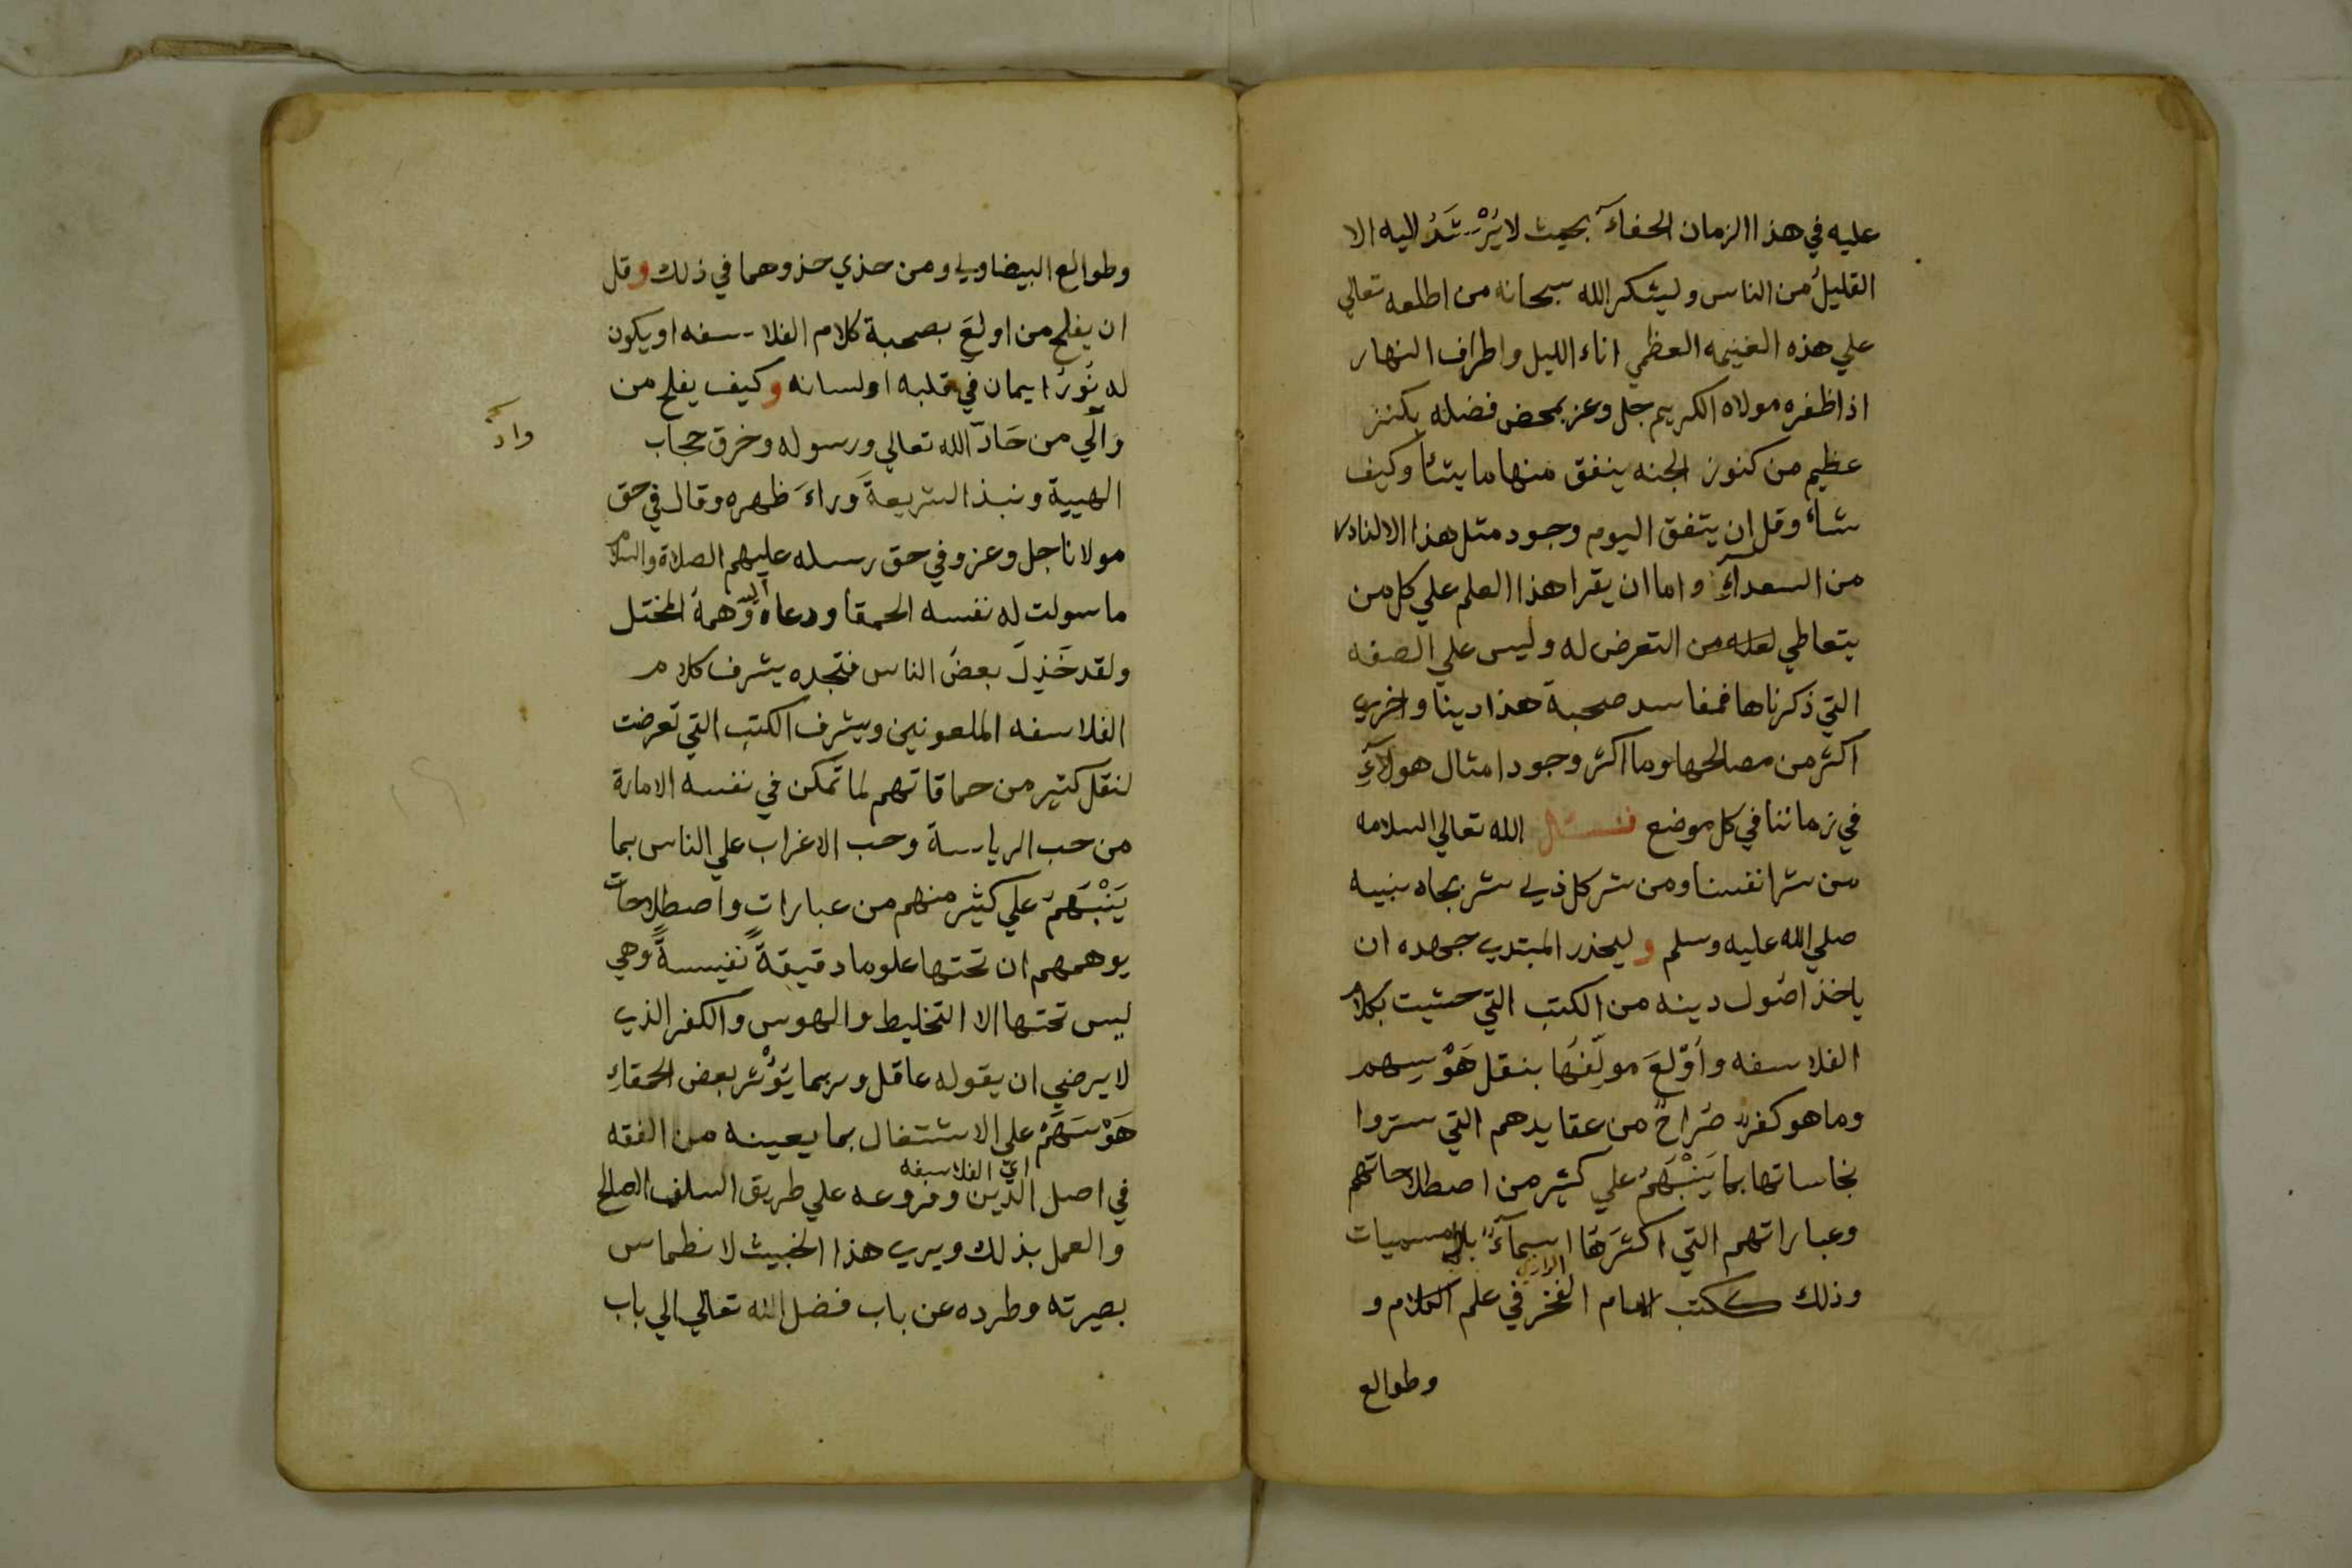 عليه في هذا الزمان الخفاء بحيث لا يُرْشَدُ اليه الا
القليلُ من الناس وليشكر الله سبحانه من اطلعه تعالي
علي هذه الغنيمه العظمي اناء الليل واطراف النهار
اذا ظفره مولاه الكريم جل وعز بمحض فضله بكنز
عظيم من كنوز الجنه ينفق منها ما يشأ وكيف
شأ وقل ان يتفق اليوم وجود مثل هذا الا لنادر
من السعدآءِ واما ان يقرا هذا العلم علي كل من
يتعاطي من التعرض له وليس علي الصفه
التي ذكرناها فمفاسد صحبة هذا دينا واخري
اكثر من مصالحها وما اكثر وجود امثال هولآءِ
في زماننا في كل موضع فنسئل الله تعالي السلامه
من شر انفسنا ومن شر كل ذي شر بجاه نبيه
صلي الله عليه وسلم وليحذر المبتدي جهده ان
ياخذ اصُول دينه من الكتب التي حشيت بكلام
الفلاسفه وأوّلعَ مولّفُها بنقل هَوْسِهم
وما هو كفرٌ صُراحٌ من عقايدهم التي ستروا
نجاساتها بما يَنْبَهَمُ علي كثير من اصطلاحاتهم
وعباراتهم التي اكثرَهَا اسمآءٌ بلا مسميات
وذلك ككتب الامام الفخر الرازي في علم الكلام و
وطوالع
وطوالع البيضاوي ومن حذي حذوهما في ذلك وقل
ان يفلح من اولعَ بصحبة كلام الفلاسفه او يكون
له نُورُ ايمان في قلبه او لسانه وكيف يفلح من
وَالَي من حَادّ الله تعالي ورسوله وخرق حجاب
وادّ
الهيبة ونبذ الشريعةَ وراءَ ظهره وقال في حق
مولانا جل وعز وفي حق رسله عليهم الصلاة والسلام
ما سولت له نفسه الحمقا ودعاه اليه وَهمهُ المختل
ولقد خَذِلَ بعضُ الناس فتجده يشرف كلام
الفلاسفه الملعونين ويشرف الكتب التي تعرضت
لنقل كثير من حماقاتهم لما تمكن في نفسه الامارة
من حب الرياسة وحب الاغراب علي الناس بما
يَنْبَهَمُ علي كثير منهم من عبارات واصطلاحات
يوهمهم ان تحتها علوما دقيقةً نفيسةً وهي
ليس تحتها الا التخليط والهوس والكفر الذي
لا يرضي ان يقوله عاقل وربما يَوُثر بعض الحمقاءِ
هَوْسَهَمُ علي الاشتغال بما يعينه من الفقه
اي الفلاسفه
في اصل الدّين وفروعه علي طريق السلف الصالح
والعمل بذلك ويري هذا الخبيث لانطماس
بصيرته وطرده عن باب فضل الله تعالي الي باب